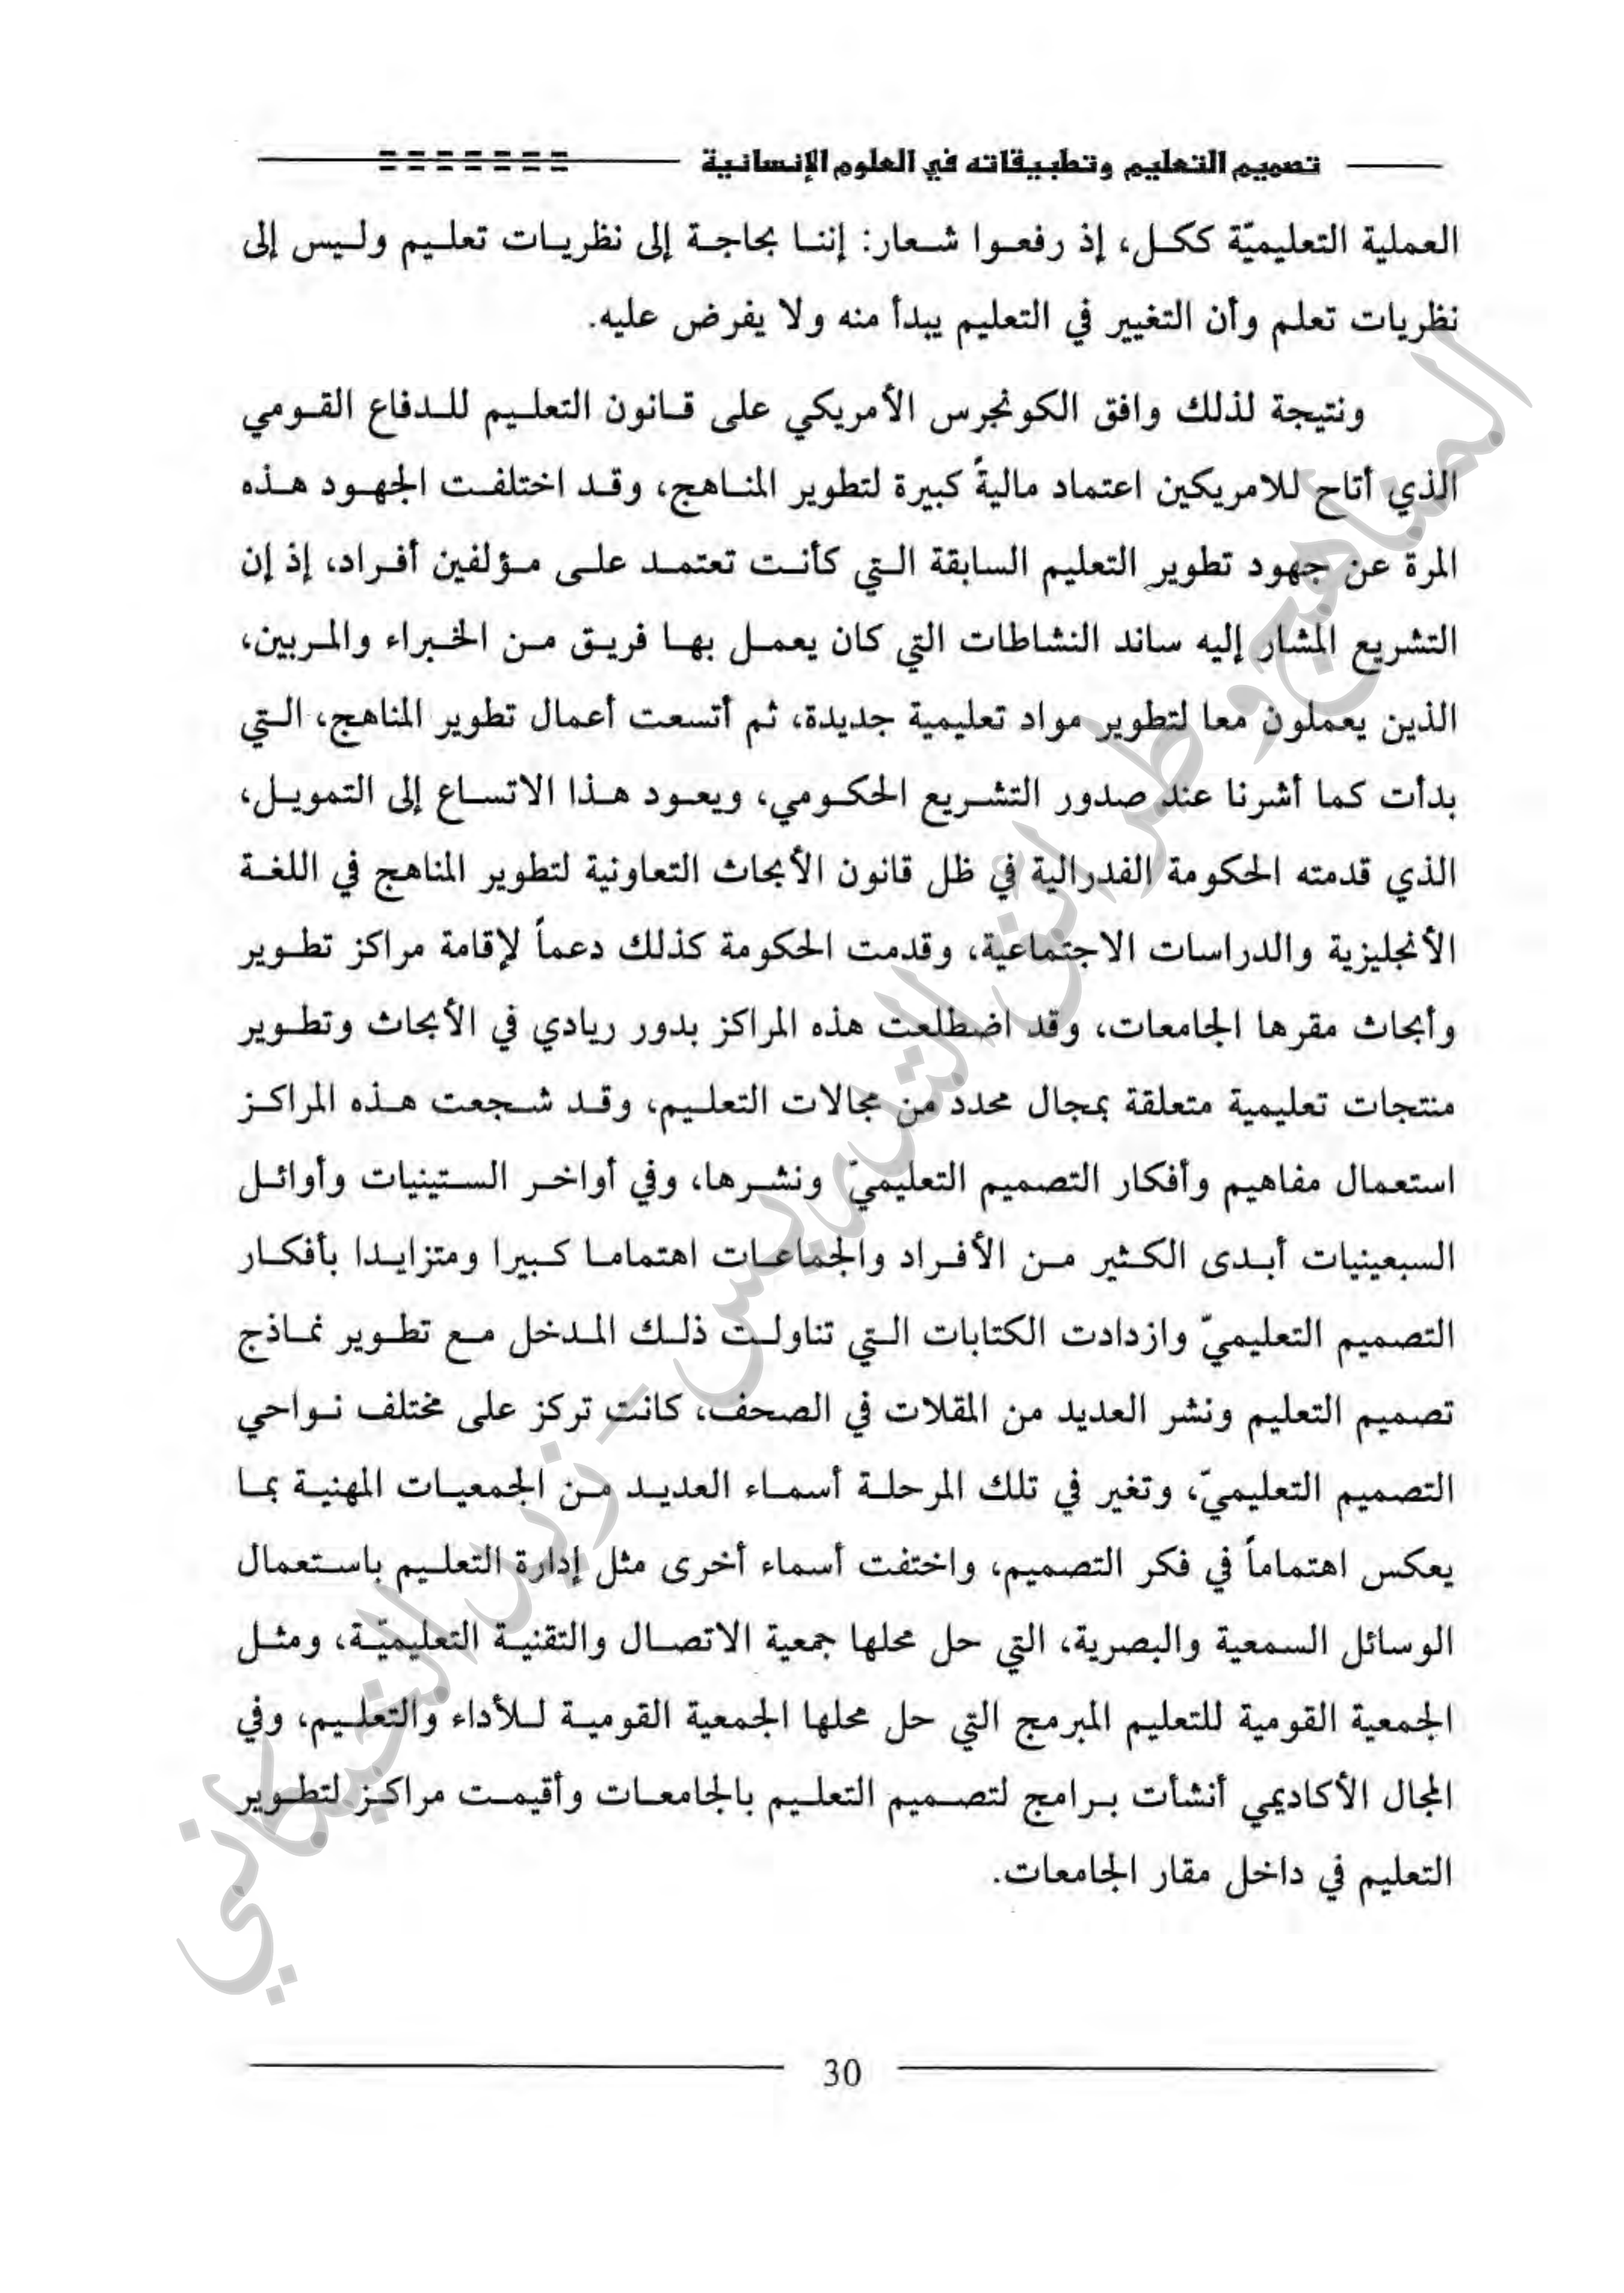 تصميم التعليم وتطبيقاته في العلوم الإنسانية
العملية التعليميّة ككل، إذ رفعوا شعار: إننا بحاجة إلى نظريات تعليم وليس إلى
نظريات تعلم وأن التغيير في التعليم يبدأ منه ولا يفرض عليه.
ونتيجة لذلك وافق الكونجرس الأمريكي على قانون التعليم للدفاع القومي
الذي أتاح للامريكين اعتماد ماليةً كبيرة لتطوير المناهج، وقد اختلفت الجهود هذه
المرة عن جهود تطوير التعليم السابقة التي كأنت تعتمد على مؤلفين أفراد، إذ إن
التشريع المشار إليه ساند النشاطات التي كان يعمل بها فريق من الخبراء والمربين،
الذين يعملون معا لتطوير مواد تعليمية جديدة، ثم أتسعت أعمال تطوير المناهج، التي
بدأت كما أشرنا عند صدور التشريع الحكومي، ويعود هذا الاتساع إلى التمويل،
الذي قدمته الحكومة الفدرالية في ظل قانون الأبحاث التعاونية لتطوير المناهج في اللغة
الأنجليزية والدراسات الاجتماعية، وقدمت الحكومة كذلك دعماً لإقامة مراكز تطوير
وأبحاث مقرها الجامعات، وقد اضطلعت هذه المراكز بدور ريادي في الأبحاث وتطوير
منتجات تعليمية متعلقة بمجال محدد من مجالات التعليم، وقد شجعت هذه المراكز
استعمال مفاهيم وأفكار التصميم التعليميّ ونشرها، وفي أواخر الستينيات وأوائل
السبعينيات أبدى الكثير من الأفراد والجماعات اهتماما كبيرا ومتزايدا بأفكار
التصميم التعليميّ وازدادت الكتابات التي تناولت ذلك المدخل مع تطوير نماذج
تصميم التعليم ونشر العديد من المقلات في الصحف، كانت تركز على مختلف نواحي
التصميم التعليميّ، وتغير في تلك المرحلة أسماء العديد من الجمعيات المهنية بما
يعكس اهتماماً في فكر التصميم، واختفت أسماء أخرى مثل إدارة التعليم باستعمال
الوسائل السمعية والبصرية، التي حل محلها جمعية الاتصال والتقنية التعليميّة، ومثل
الجمعية القومية للتعليم المبرمج التي حل محلها الجمعية القومية للأداء والتعليم، وفي
المجال الأكاديمي أنشأت برامج لتصميم التعليم بالجامعات وأقيمت مراكز لتطوير
التعليم في داخل مقار الجامعات.
30
المناهج وطرائق التدريس - زيد الخيكاني